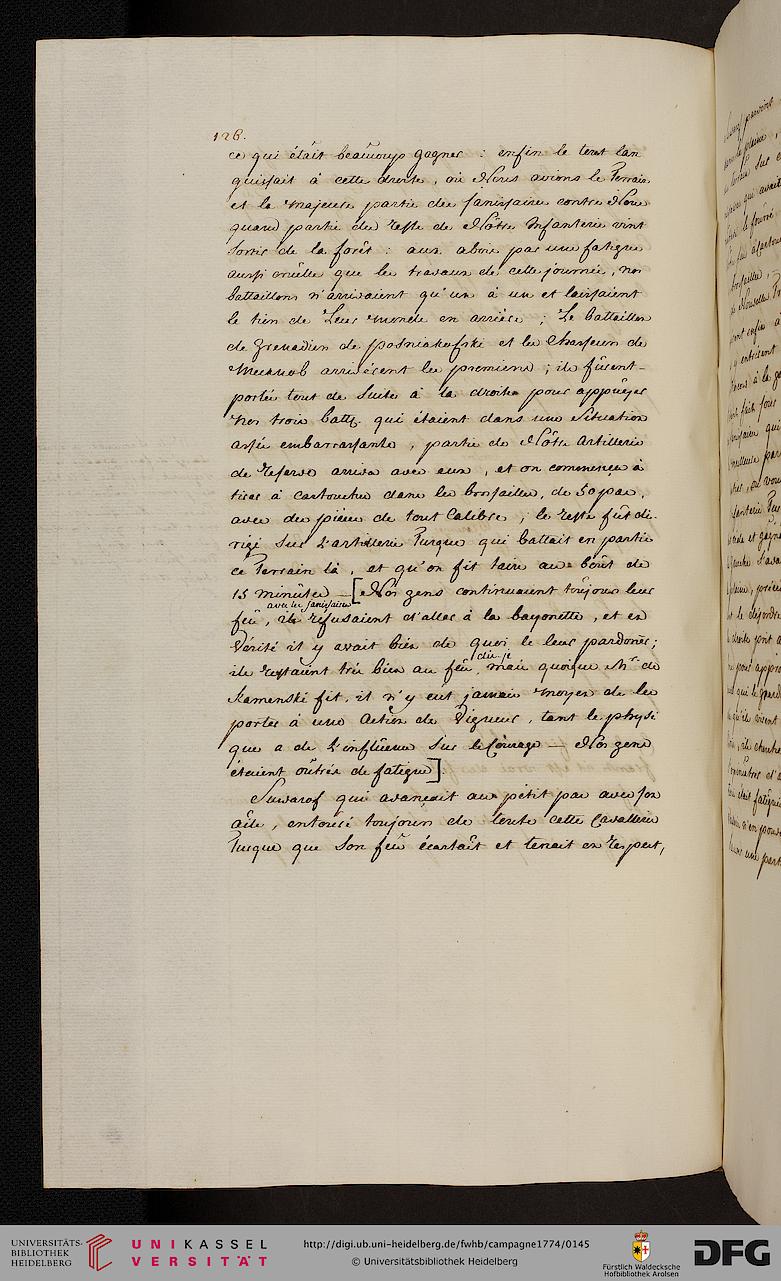 126.
ce qui était beaúcoup gagner : enfin le tout lan
guissait à cette droite, où Nous avions le Terrain
et la majeure partie des janissaires contre Nous
quand partie du reste de Nôtre Infanterie vint
sortir de la forêt : aux abois par une fatigue
aussi cruelle que les travaux de cette journée, nos
battaillons n'arrivaient qu'un à un et laissaient
le tiers de Leur monde en arrière ; Le battaillon
de Grenadiers de
et les Chasseurs de
arrivèrent les premiers ; ils fûrent
portés tout de Suite à la droite pour appuÿer
nos trois batt. qui étaient dans une Situation
assés embarrassante, partie de Nôtre Artillerie
de reserve arriva avec eux, et on commença à
tirer à cartouches dans les brossailles, de 50 pas,
avec des pièces de tout Calibre ; le reste fût di-
rigé Sur L'artillerie Turque qui battait en partie
ce Terrain là, et qu'on fit taire au bout de
15 minûtes — [Nos gens continuaient toûjours leur
avec les janissaires
feû, ils refusaient d'aller à la bayonette, et en
Vérité il y avait bien de quoi le leur pardoner ;
dis-je
ils restaient très bien au feû, mais quoique Mr de
Kamenski fit, il n'y eût jamais moyen de les
porter à une Action de Vigueur, tant le physi
que a de L'inflûence Sur le Coûrage — Nos gens
étaient oûtrés de fatigue].
Suwarof qui avançait au pétit pas avec son
aîle, entouré toujours de toute cette Cavallerie
Turque que Son feû écartait et tenait en respect,
UNIVERSITÄTS-
BIBLIOTHEK
HEIDELBERG
UNIKASSEL
VERSITÄT
http://digi.ub.uni-heidelberg.de/fwhb/campagne1774/0145
© Universitätsbibliothek Heidelberg
Fürstlich Waldecksche
Hofbibliothek Arolsen
DFG